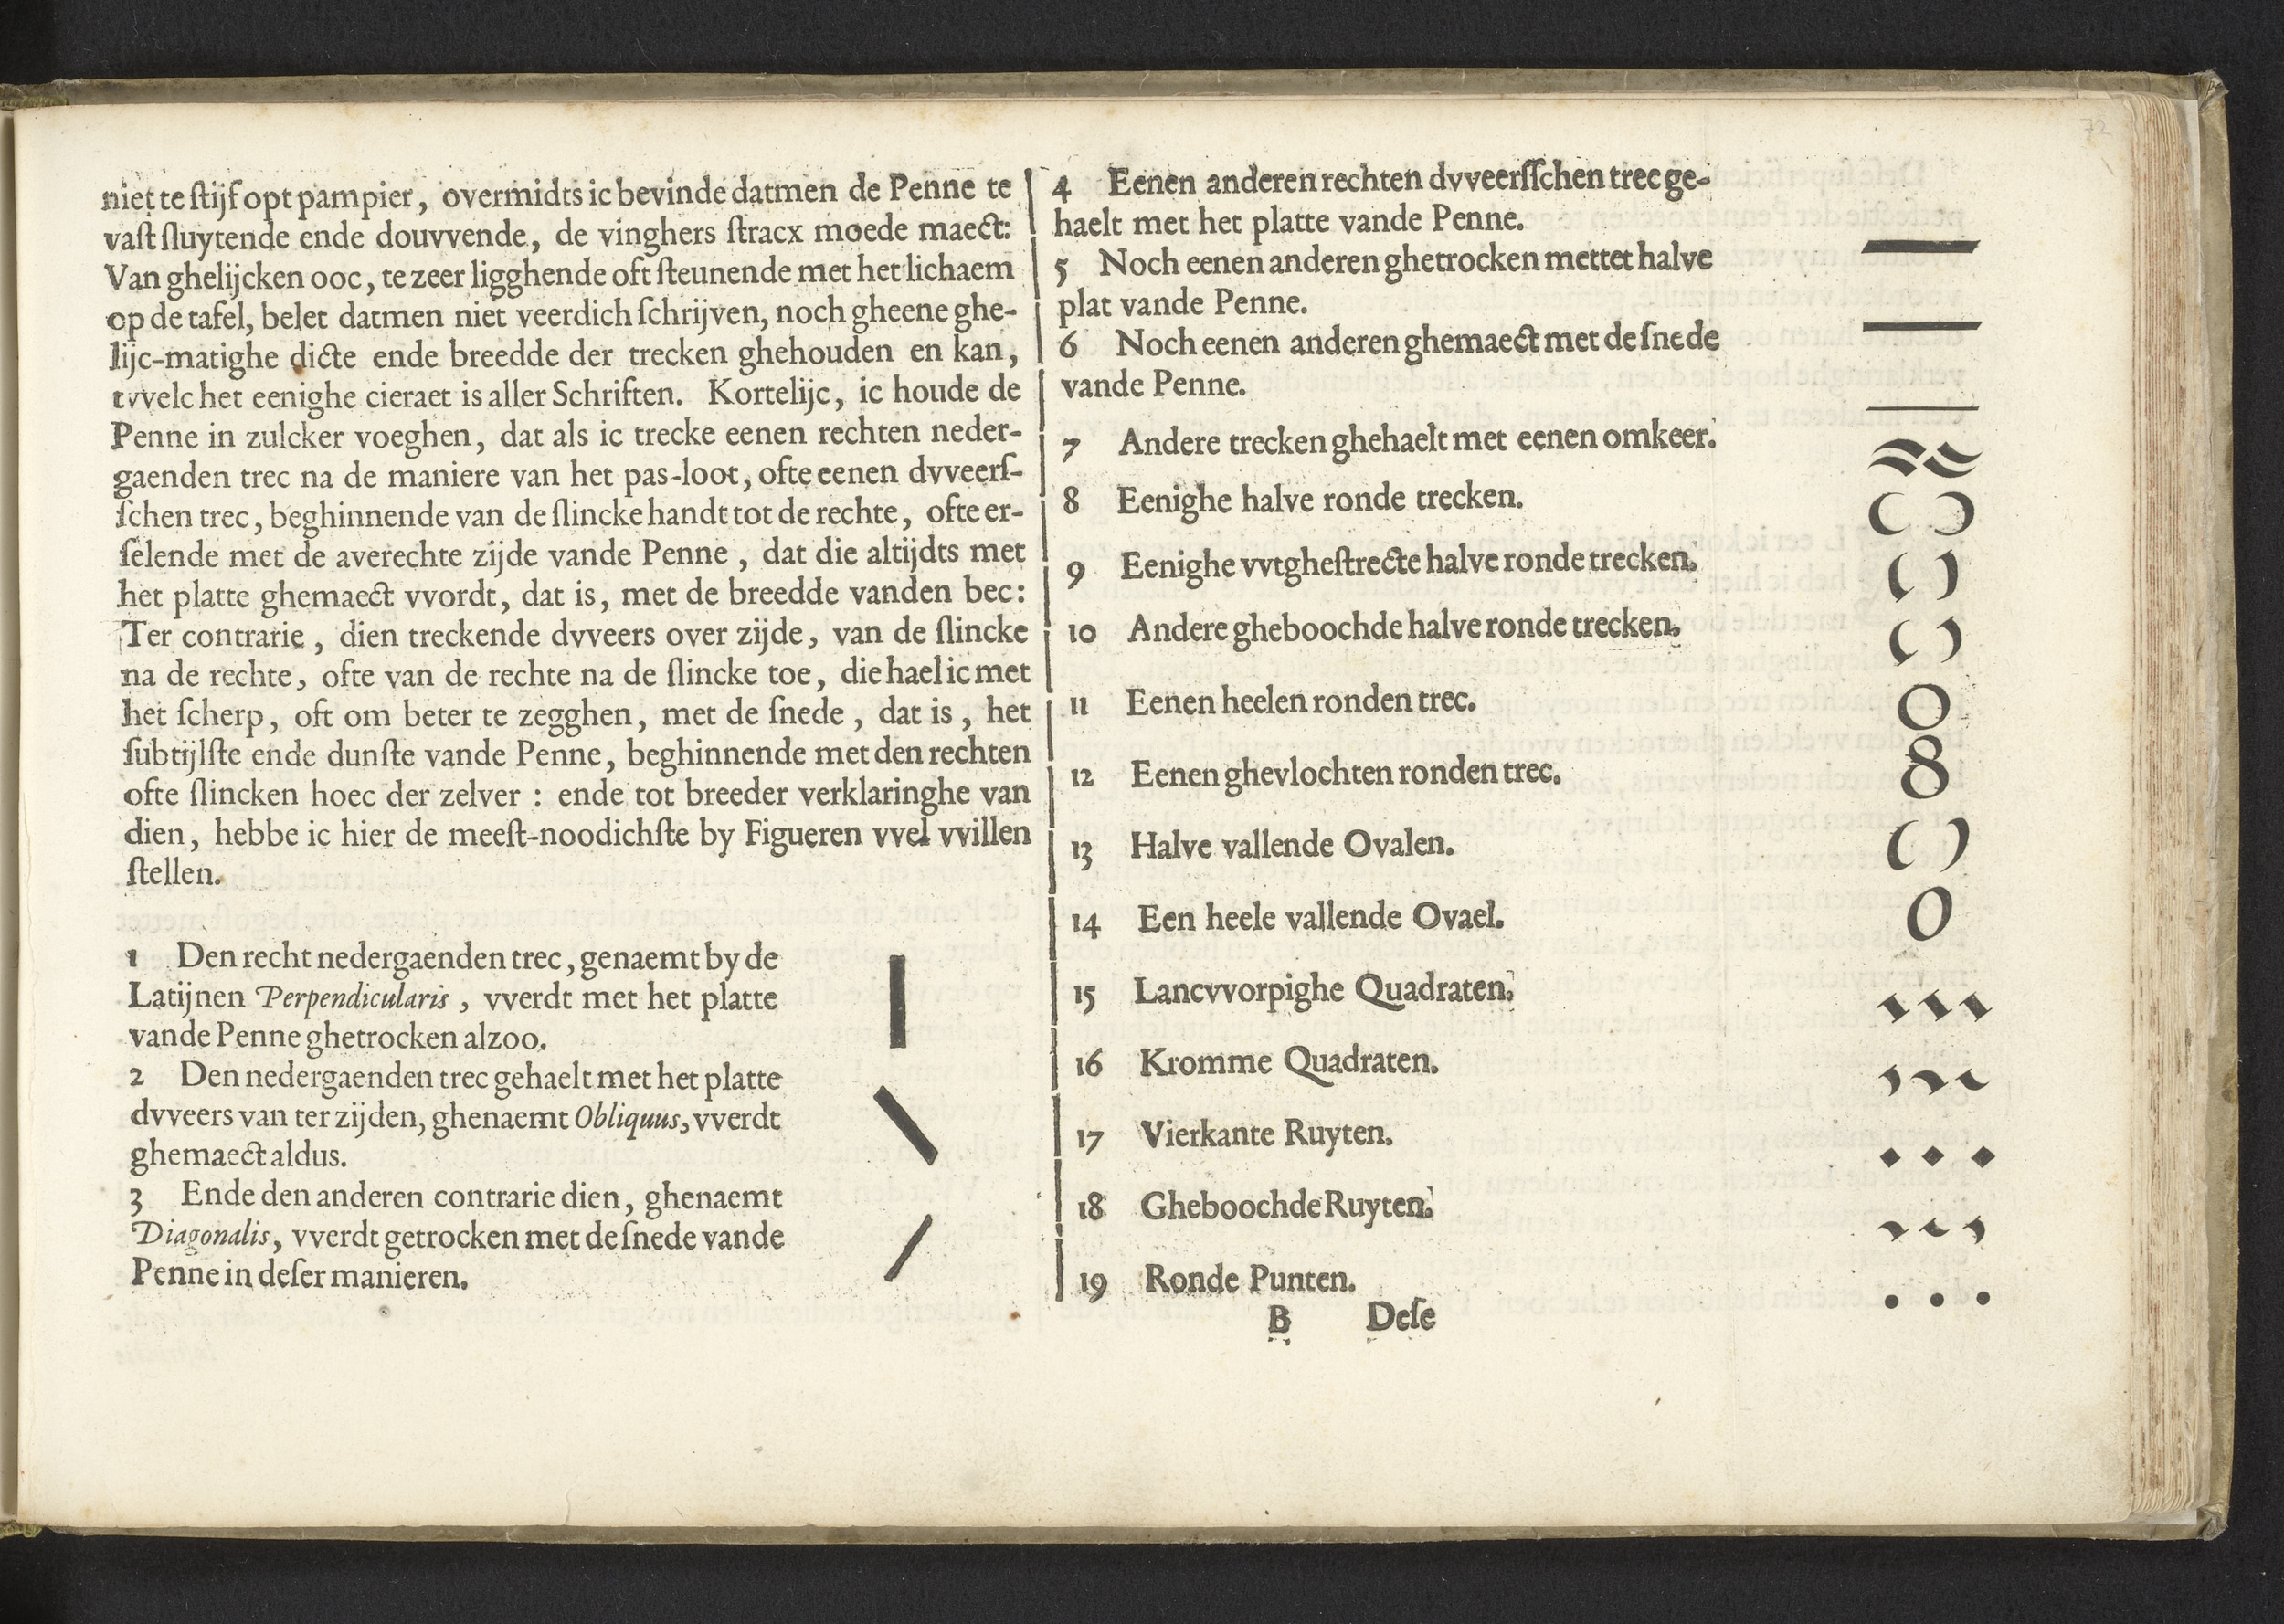 niet te ſtijf opt pampier, overmidts ic bevinde datmen de Penne te
vaſt ſluytende ende douvvende, de vinghers ſtracx moede maect:
Van ghelijcken ooc, te zeer ligghende oft ſteunende met het lichaem
op de tafel, belet datmen niet veerdich ſchrijven, noch gheene ghe-
lijc-matighe dicte ende breedde der trecken ghehouden en kan,
tvvelc het eenighe cieraet is aller Schriften. Kortelijc, ic houde de
Penne in zulcker voeghen, dat als ic trecke eenen rechten neder-
gaenden trec na de maniere van het pas-loot, ofte eenen dvveerſ-
ſchen trec, beghinnende van de ſlincke handt tot de rechte, ofte er-
ſelende met de averechte zijde vande Penne, dat die altijdts met
het platte ghemaect vvordt, dat is, met de breedde vanden bec:
Ter contrarie, dien treckende dvveers over zijde, van de ſlincke
na de rechte, ofte van de rechte na de ſlincke toe, die hael ic met
het ſcherp, oft om beter te zegghen, met de ſnede, dat is, het
ſubtijlſte ende dunſte vande Penne, beghinnende met den rechten
ofte ſlincken hoec der zelver: ende tot breeder verklaringhe van
dien, hebbe ic hier de meeſt-noodichſte by Figueren vvel vvillen
ſtellen.
1 Den recht nedergaenden trec, genaemt by de
Latijnen Perpendicularis, vverdt met het platte
vande Penne ghetrocken alzoo.
2 Den nedergaenden trec gehaelt met het platte
dvveers van ter zijden, ghenaemt Obliquus, vverdt
ghemaect aldus.
3 Ende den anderen contrarie dien, ghenaemt
Diagonalis, vverdt getrocken met de ſnede vande
Penne in deſer manieren.
4 Eenen anderen rechten dvveerſſchen trec ge-
haelt met het platte vande Penne.
5 Noch eenen anderen ghetrocken mettet halve
plat vande Penne.
6 Noch eenen anderen ghemaect met de ſnede
vande Penne.
7 Andere trecken ghehaelt met eenen omkeer.
8 Eenighe halve ronde trecken.
9 Eenighe vvtgheſtrecte halve ronde trecken.
10 Andere gheboochde halve ronde trecken.
11 Eenen heelen ronden trec.
12 Eenen ghevlochten ronden trec.
13 Halve vallende Ovalen.
14 Een heele vallende Ovael.
15 Lancvvorpighe Quadraten.
16 Kromme Quadraten.
17 Vierkante Ruyten.
18 Gheboochde Ruyten.
19 Ronde Punten.
B Deſe
72